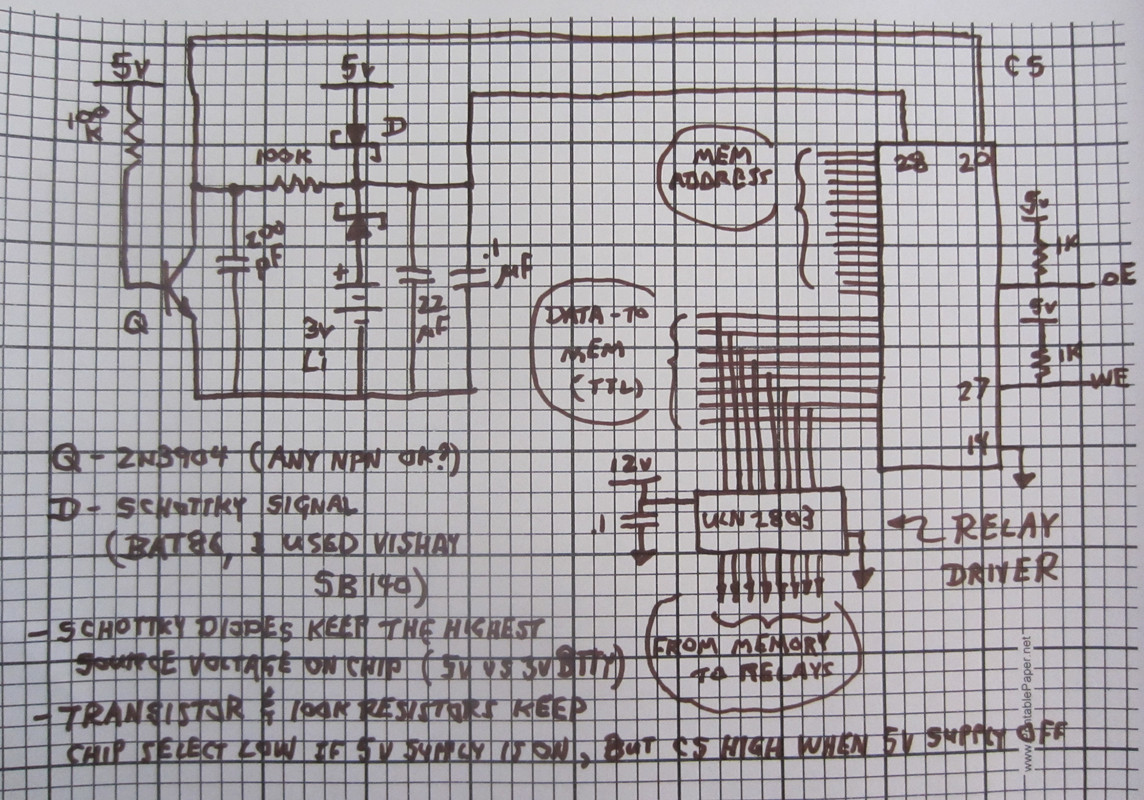 5V
5V
CS
100
K
D
100K
MEM
ADDRESS
28 20
5V
200
PF
.1
µF
1K
OE
+
5V
Q
3V
Li
22
µF
DATA-TO
MEM
(TTL)
1K
WE
27
14
12V
.1
UCN2803
RELAY
DRIVER
FROM MEMORY
TO RELAYS
Q - 2N3904 (ANY NPN OK?)
D - SCHOTTKY SIGNAL
(BAT86, I USED VISHAY
SB140)
- SCHOTTKY DIODES KEEP THE HIGHEST
SOURCE VOLTAGE ON CHIP (5V VS 3V BTTY)
- TRANSISTOR & 100K RESISTORS KEEP
CHIP SELECT LOW IF 5V SUPPLY IS ON, BUT CS HIGH WHEN 5V SUPPLY OFF